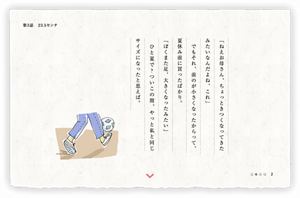 第3話 22.5センチ
「ねえお母さん、ちょっときつくなってきた
みたいなんだよね、これ」
でもそれ、前のが小さくなったからって、
夏休み前に買ったばかり。
「ぼくまた足、大きくなったみたい」
ひと夏で？ついこの間、やっと私と同じ
サイズになったと思えば。
2